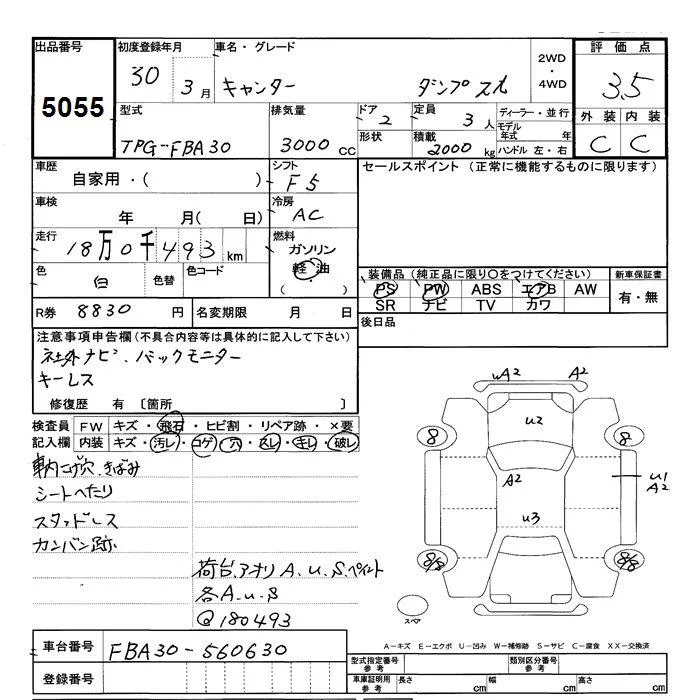 出品番号 初度登録年月 車名・グレード 2WD・4WD 評価点
5055 30 3月 キャンター ダンプ 3.5
型式 排気量 ドア 定員 ディーラー・並行 外装 内装
TPG-FBA30 3000cc 2 3人 モデル年式 年 C C
形状 積載 2000kg ハンドル 左・右
車歴 シフト セールスポイント (正常に機能するものに限ります)
自家用・( ) F5
車検 冷房
年 月( 日) AC
走行 燃料
18万0千493km ガソリン
軽油
( )
色 白 色替 色コード
装備品 (純正品に限り○をつけてください) 新車保証書
PS PW ABS エアB AW 有・無
SR ナビ TV カワ
R券 8830円 名変期限 月 日
後日品
注意事項申告欄(不具合内容等は具体的に記入して下さい)
社外ナビ、バックモニター
キーレス
修復歴 有 [箇所 ]
検査員 FW キズ・飛石・ヒビ割・リペア跡・×要
記入欄 内装 キズ・汚レ・コゲ・穴・スレ・キレ・破レ
車内こげ穴、きばみ
シートへたり
スタッドレス
カンバン跡
荷台、アオリ A、U、S、ペイント
各A・U・S
Q180493
uA2 A2
u2
8 8
A2 u1
A2
u3
8/8 8/8
スペア
A-キズ E-エクボ U-凹み W-補修跡 S-サビ C-腐食 XX-交換済
車台番号 FBA30-560630
登録番号
型式指定番号 参考 類別区分番号 参考
車庫証明用 参考 長さ cm 幅 cm 高さ cm